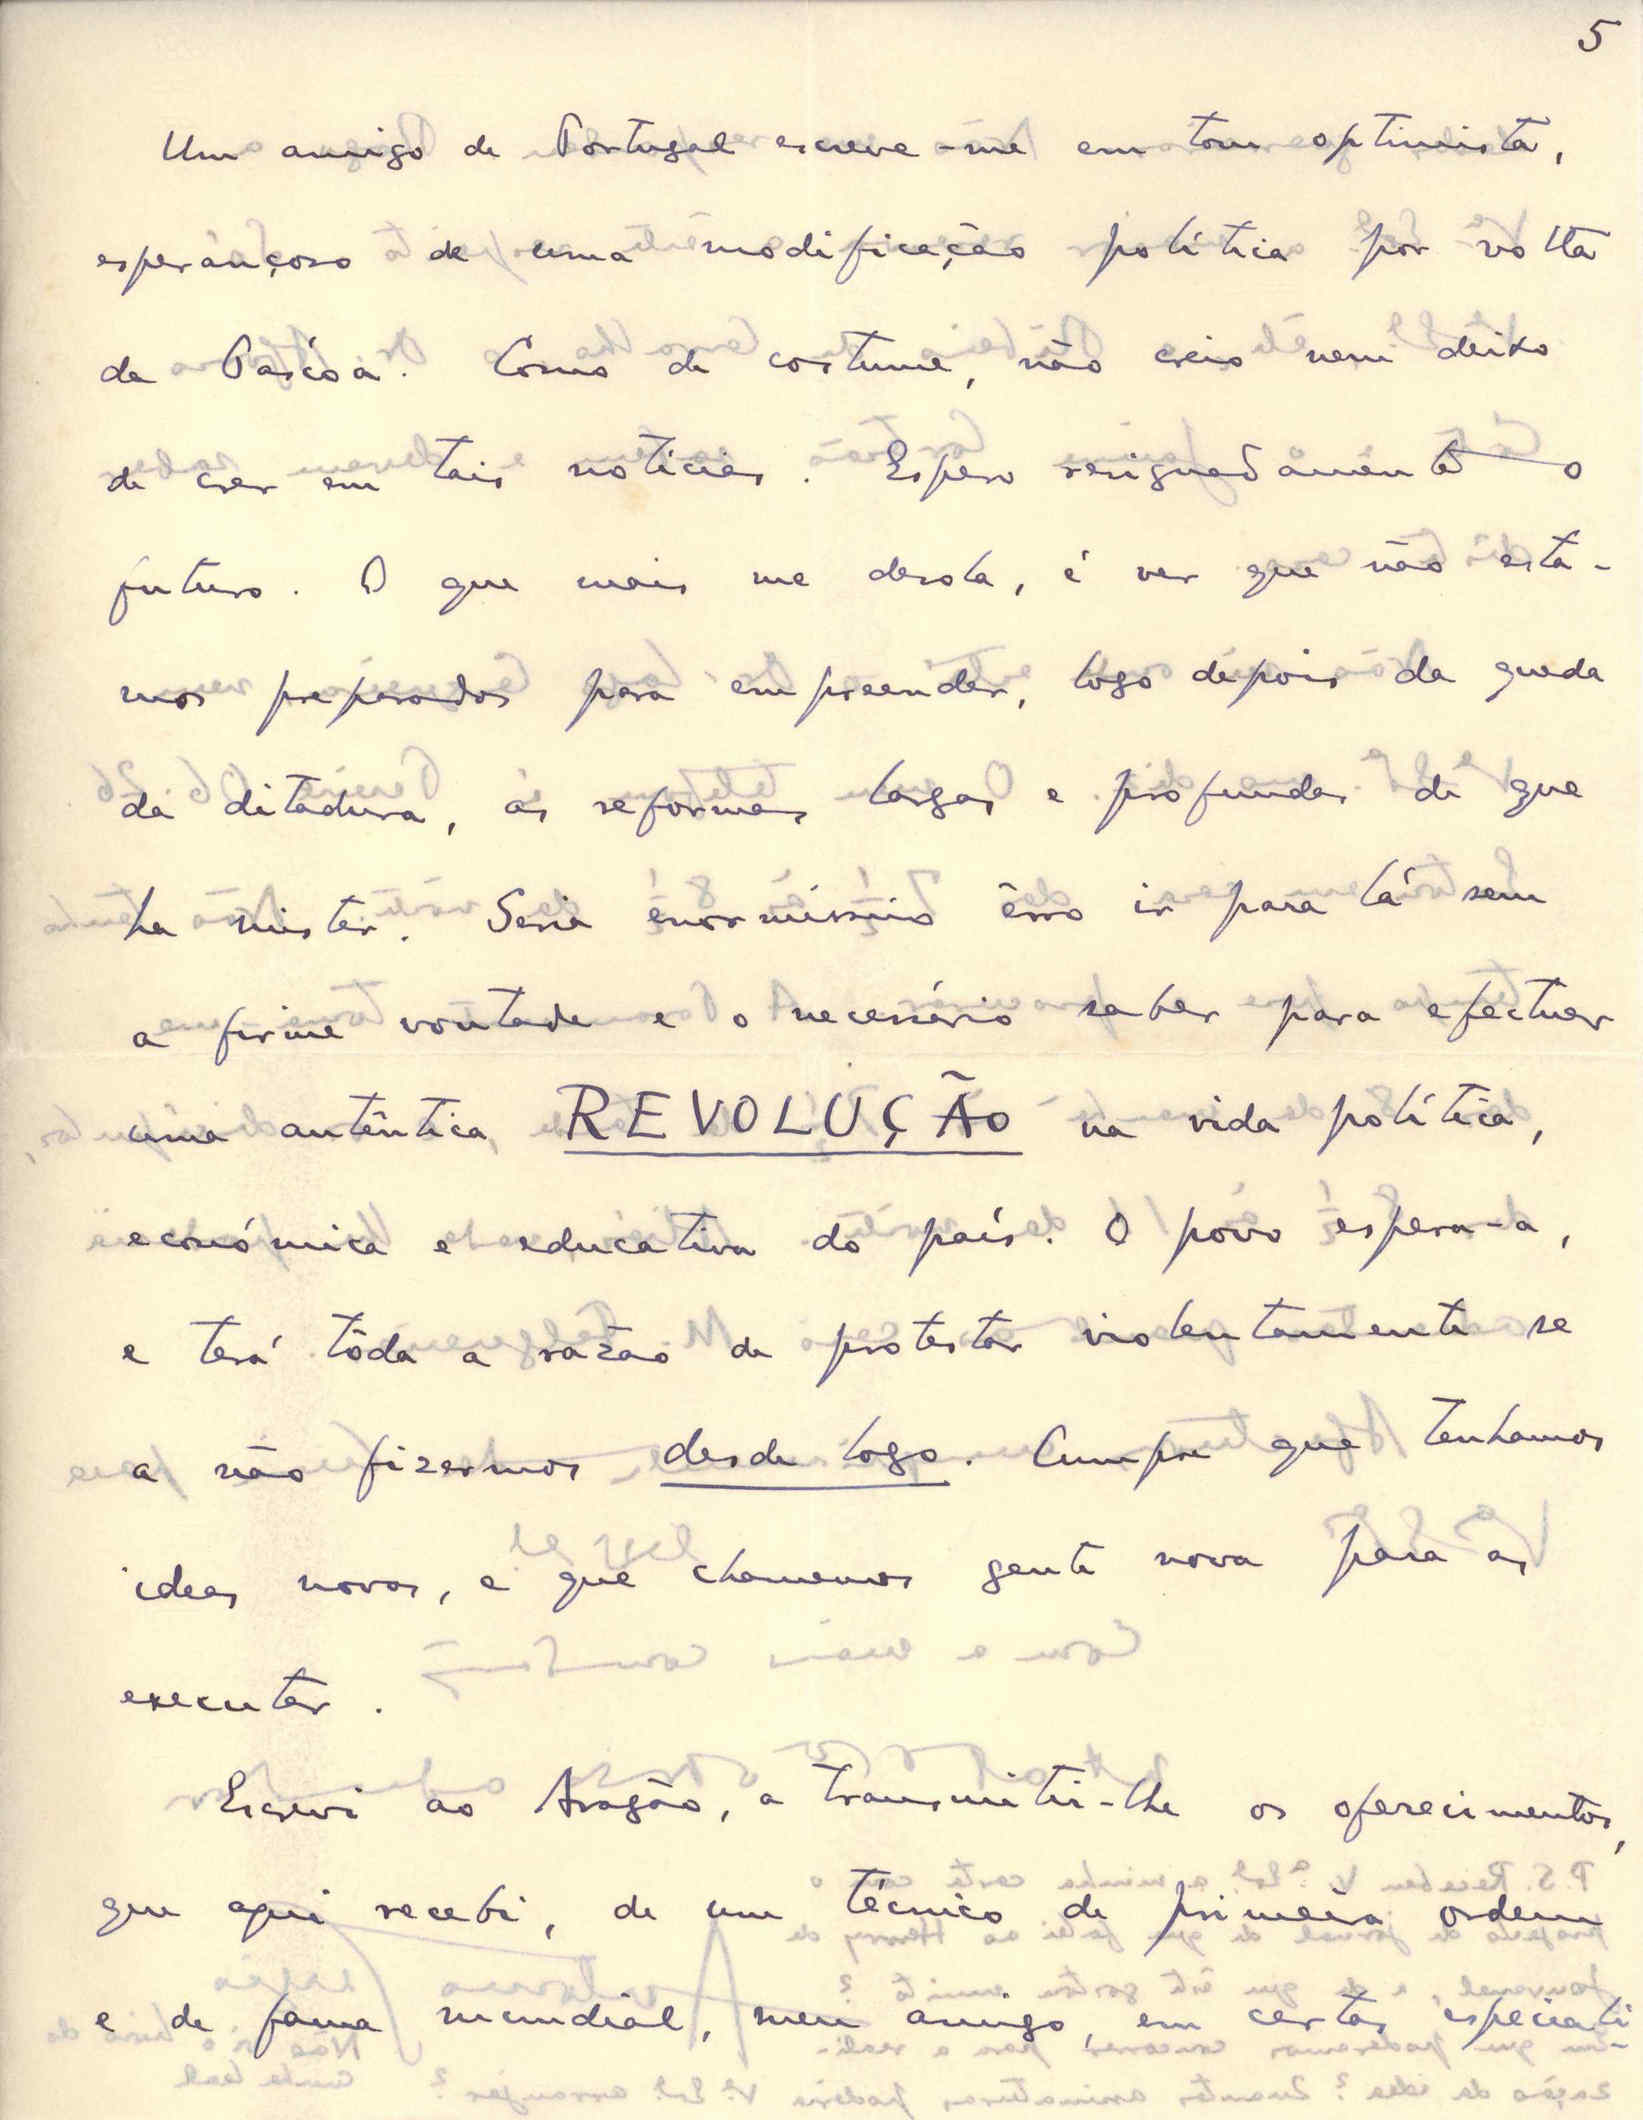 5
Um amigo de Portugal escreve-me em tom optimista,
esperançoso de uma modificação política por volta
da Páscoa. Como de costume, não creio nem deixo
de crer em tais notícias. Espero resignadamente o
futuro. O que mais me desola, é ver que não esta-
mos preparados para empreender, logo depois da queda
da ditadura, as reformas largas e profundas de que
ha mister. Seria enormíssimo êrro ir para lá sem
a firme vontade e o necessário saber para efectuar
uma autêntica REVOLUÇÃO na vida política,
económica e educativa do país. O povo espera-a,
e terá tôda a razão de protestar violentamente se
a não fizermos desde logo. Cumpre que tenhamos
ideas novas, e que chamemos gente nova para as
executar.
Escrevi ao Aragão, a transmitir-lhe os oferecimentos,
que aqui recebi, de um técnico de primeira ordem
e de fama mundial, meu amigo, em certas especiali-